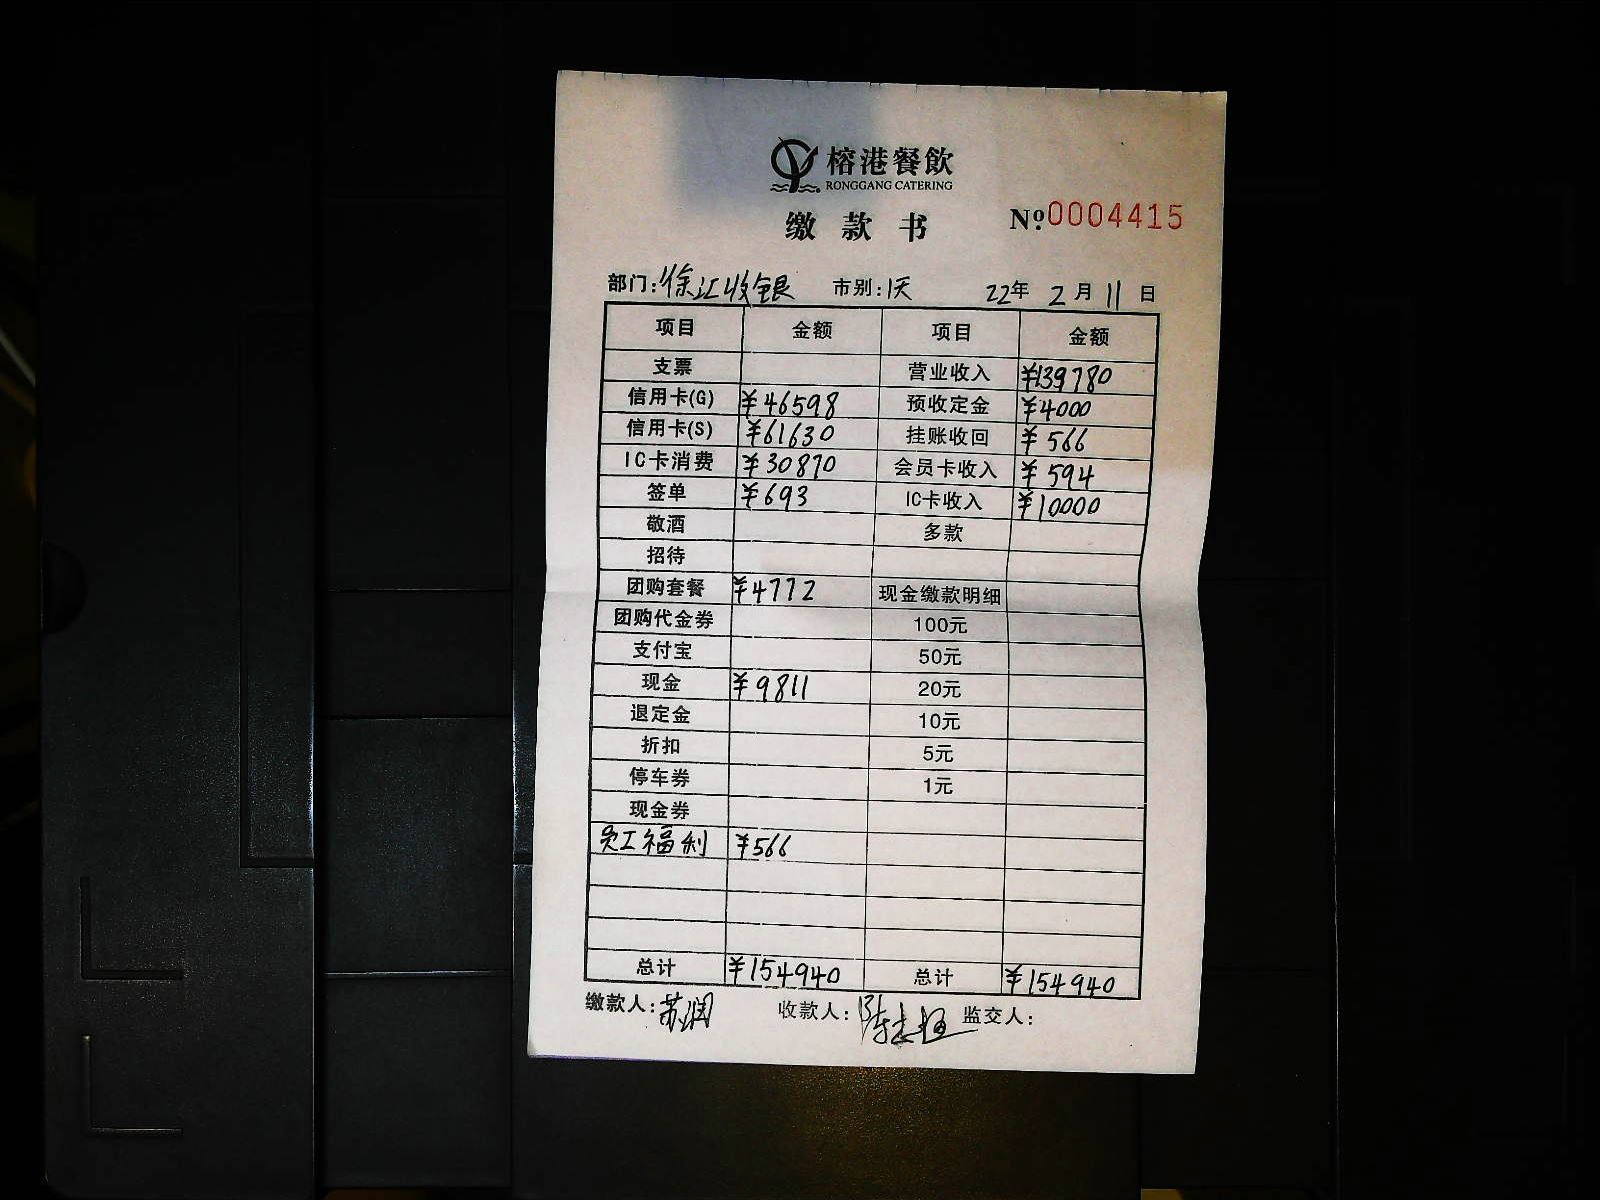 榕港餐飲
RONGGANG CATERING
缴款书 Nº.0004415
部门:徐汇收银 市别:1天 22年 2月 11日
项目 金额 项目 金额
支票 营业收入 ¥139780
信用卡(G) ¥46598 预收定金 ¥4000
信用卡(S) ¥61630 挂账收回 ¥566
IC卡消费 ¥30870 会员卡收入 ¥594
签单 ¥693 IC卡收入 ¥10000
敬酒 多款
招待
团购套餐 ¥4772 现金缴款明细
团购代金券 100元
支付宝 50元
现金 ¥9811 20元
退定金 10元
折扣 5元
停车券 1元
现金券
员工福利 ¥566
总计 ¥154940 总计 ¥154940
缴款人:苏润 收款人: 监交人: